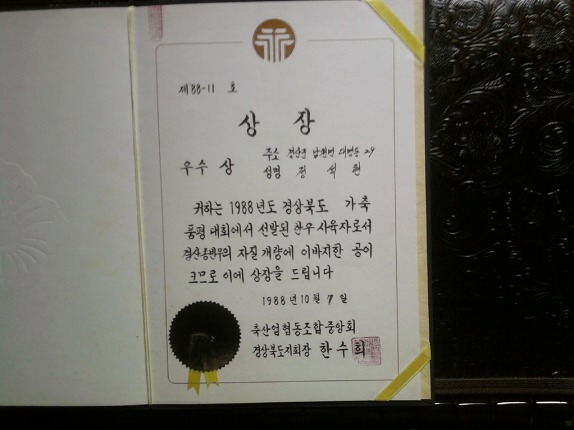 제'88-11 호
상 장
우수 상
주소 경산군 남천면 대명동 29
성명 정 석 원
귀하는 1988년도 경상북도 가축
품평 대회에서 선발된 한우 사육자로서
자질 개량에 이바지한 공이
크므로 이에 상장을 드립니다
1988년 10월 7일
축산업협동조합중앙회
경상북도지회장 한수희